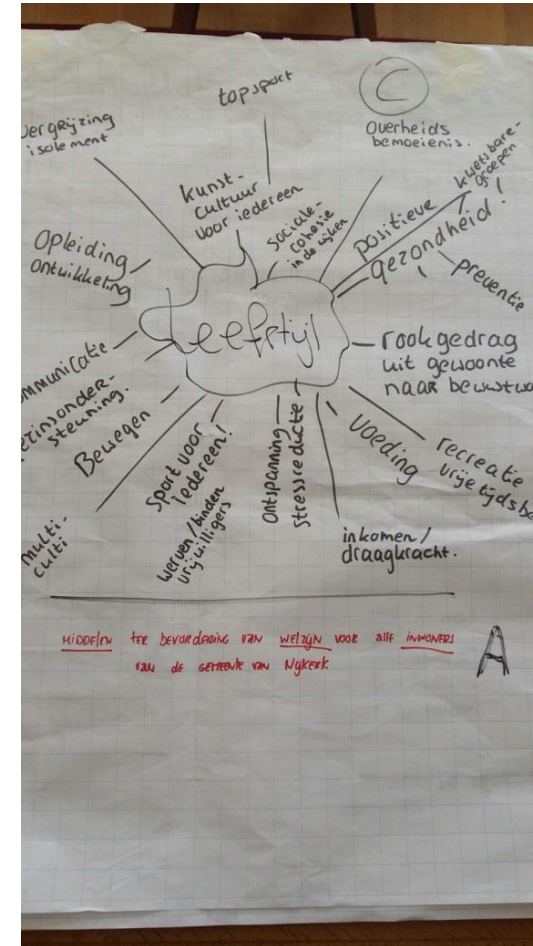 topsport
C
vergrijzing
isolement
Overheids
bemoeienis.
kwetsbare-
groepen
kunst-
cultuur
voor iedereen
sociale-
cohesie
in de wijken
positieve
gezondheid!
preventie
Opleiding
ontwikkeling
Leefstijl
rookgedrag
uit gewoonte
naar bewustwo
mmunicatie
ezinsonder-
steuning.
Bewegen
sport voor
iedereen!
werven/binden
vrijwilligers
ontspanning
stressreductie
voeding
recreatie
vrijetijdsbe
multi-
culti
inkomen/
draagkracht.
MIDDELEN TER BEVORDERING VAN WELZIJN VOOR ALLE INWONERS
VAN DE GEMEENTE VAN NIJKERK
A